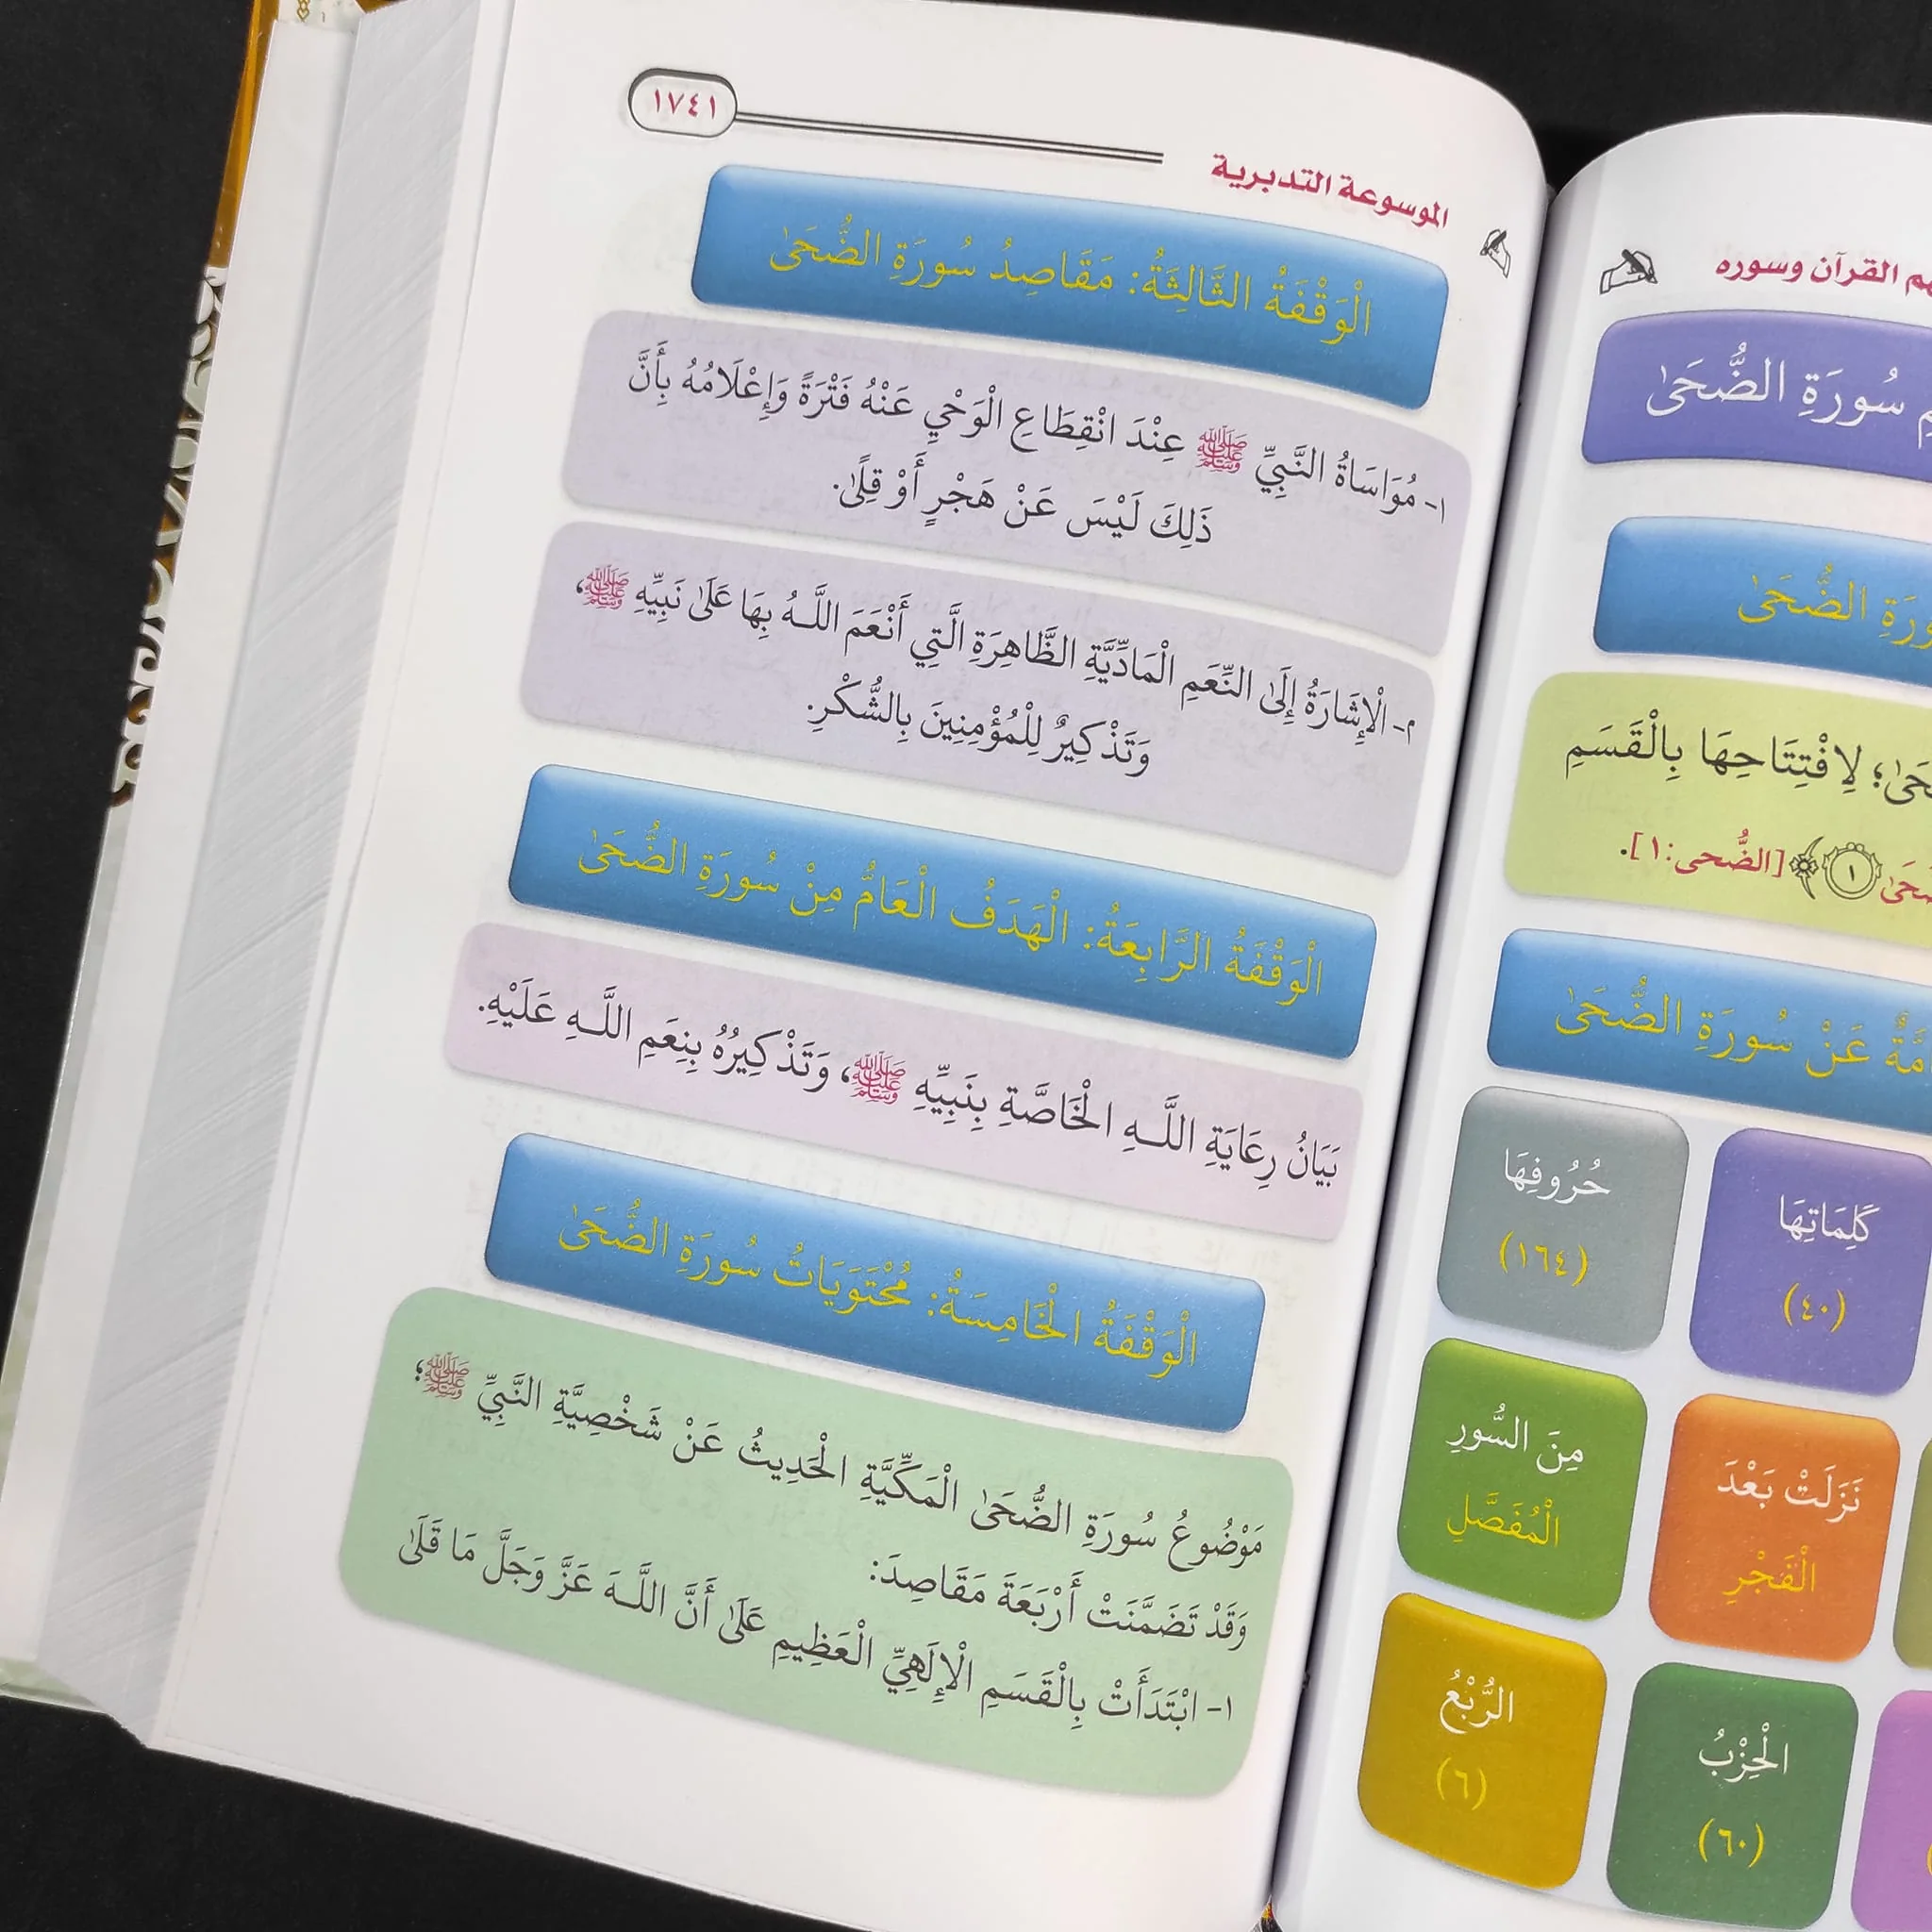 القرآن وسوره
سُورَةِ الضُّحَىٰ
الضُّحَىٰ
لِافْتِتَاحِهَا بِالْقَسَمِ
١ ﴾ [الضُّحى:١].
عَنْ سُورَةِ الضُّحَىٰ
كَلِمَاتِهَا
(٤٠)
حُرُوفِهَا
(١٦٤)
نَزَلَتْ بَعْدَ
الْفَجْرِ
مِنَ السُّورِ
الْمُفَصَّلِ
الْحِزْبُ
(٦٠)
الرُّبْعُ
(٦)
الموسوعة التدبرية
١٧٤١
الْوَقْفَةُ الثَّالِثَةُ: مَقَاصِدُ سُورَةِ الضُّحَىٰ
١- مُوَاسَاةُ النَّبِيِّ ﷺ عِنْدَ انْقِطَاعِ الْوَحْيِ عَنْهُ فَتْرَةً وَإِعْلَامُهُ بِأَنَّ
ذَلِكَ لَيْسَ عَنْ هَجْرٍ أَوْ قِلًىٰ.
٢- الْإِشَارَةُ إِلَىٰ النِّعَمِ الْمَادِّيَّةِ الظَّاهِرَةِ الَّتِي أَنْعَمَ اللَّـهُ بِهَا عَلَىٰ نَبِيِّهِ ﷺ،
وَتَذْكِيرٌ لِلْمُؤْمِنِينَ بِالشُّكْرِ.
الْوَقْفَةُ الرَّابِعَةُ: الْهَدَفُ الْعَامُّ مِنْ سُورَةِ الضُّحَىٰ
بَيَانُ رِعَايَةِ اللَّـهِ الْخَاصَّةِ بِنَبِيِّهِ ﷺ، وَتَذْكِيرُهُ بِنِعَمِ اللَّـهِ عَلَيْهِ.
الْوَقْفَةُ الْخَامِسَةُ: مُحْتَوَيَاتُ سُورَةِ الضُّحَىٰ
مَوْضُوعُ سُورَةِ الضُّحَىٰ الْمَكِّيَّةِ الْحَدِيثُ عَنْ شَخْصِيَّةِ النَّبِيِّ ﷺ؛
وَقَدْ تَضَمَّنَتْ أَرْبَعَةَ مَقَاصِدَ:
١- ابْتَدَأَتْ بِالْقَسَمِ الْإِلَهِيِّ الْعَظِيمِ عَلَىٰ أَنَّ اللَّـهَ عَزَّ وَجَلَّ مَا قَلَىٰ